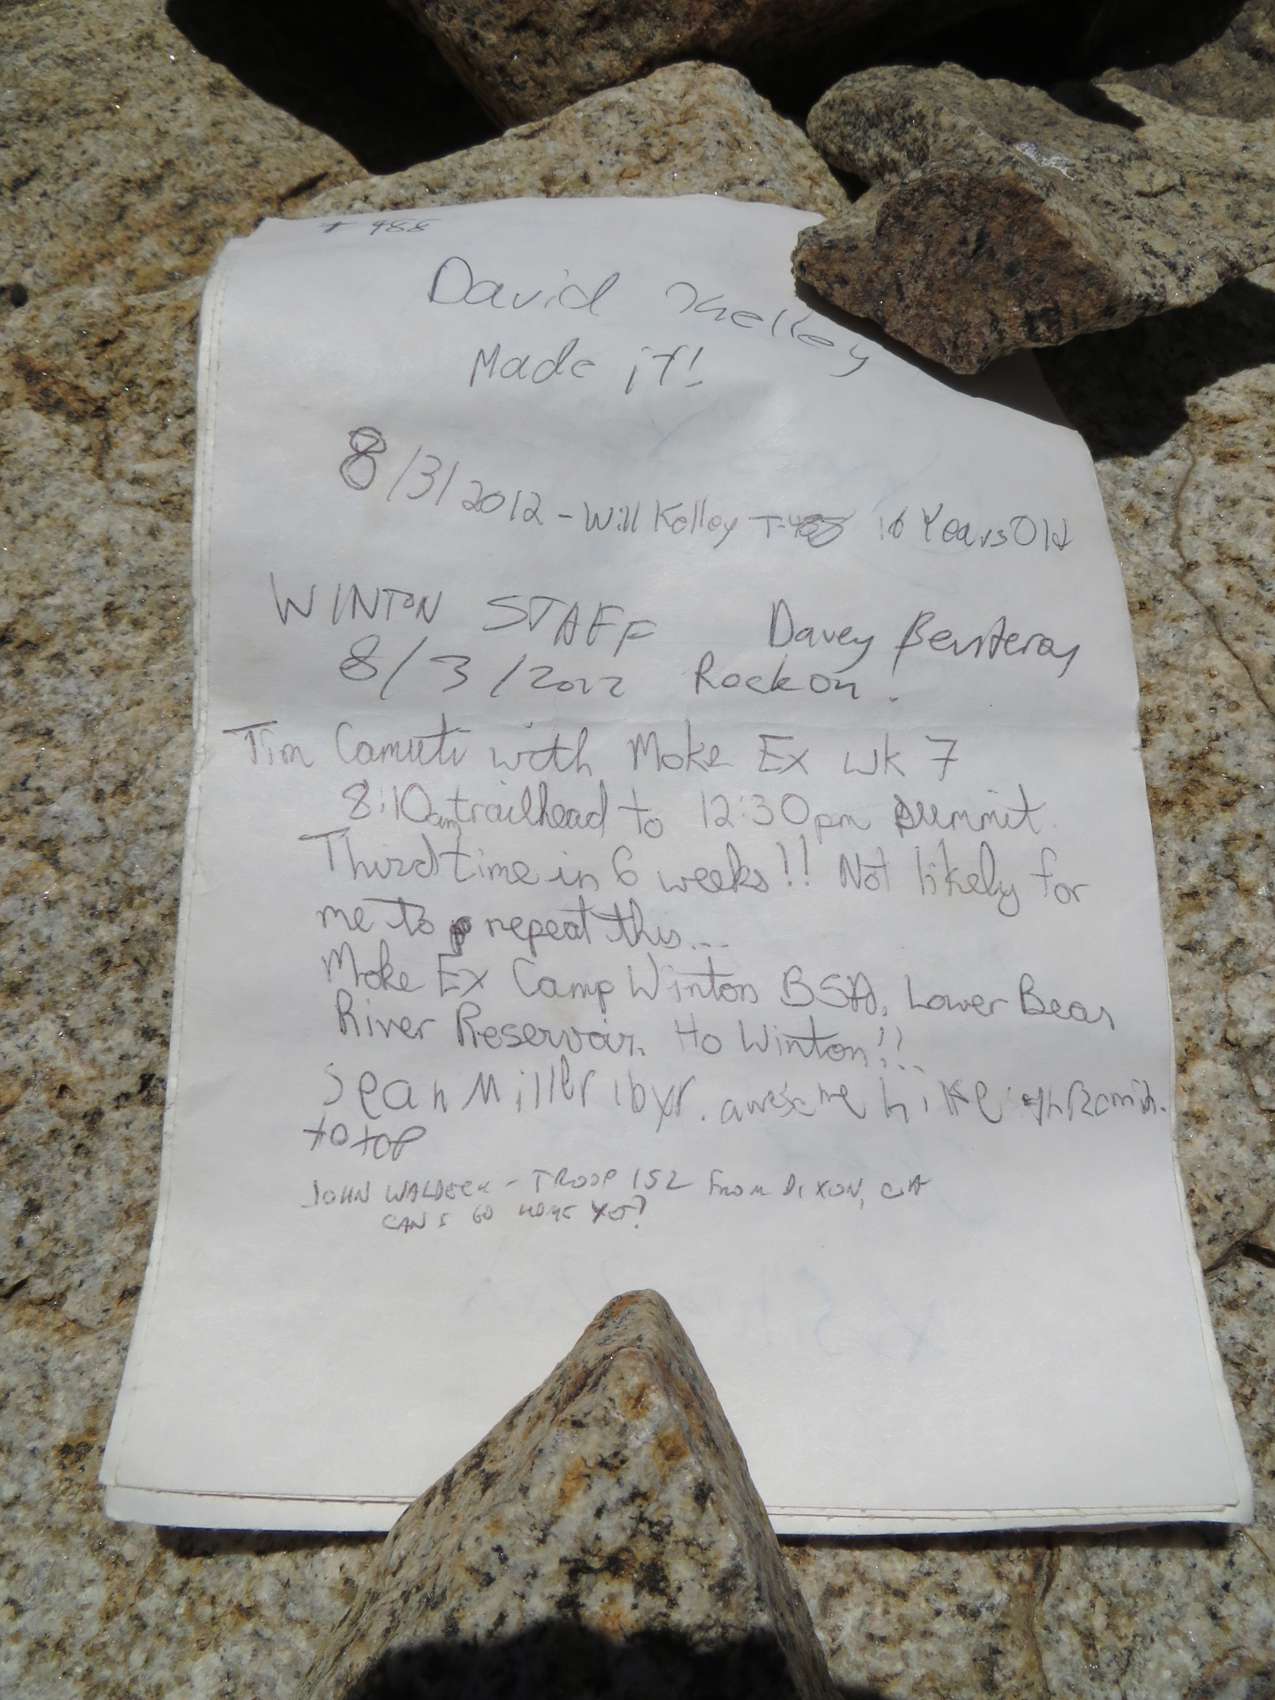 488
David Kelley
Made it!
8/3/2012 - Will Kelley T-488 16 Years Old
WINTON STAFF Davey
8/3/2012 Rock on!
Tim Camuti with Moke Ex wk 7
8:10am trailhead to 12:30pm summit.
Third time in 6 weeks!! Not likely for
me to repeat this...
Moke Ex Camp Winton BSA, Lower Bear
River Reservoir. Ho Winton!!
Sean Miller 16yr. awesome hike 4hr20min.
to top
JOHN WALDECK - TROOP 152 FROM DIXON, CA
CAN I GO HOME YET?